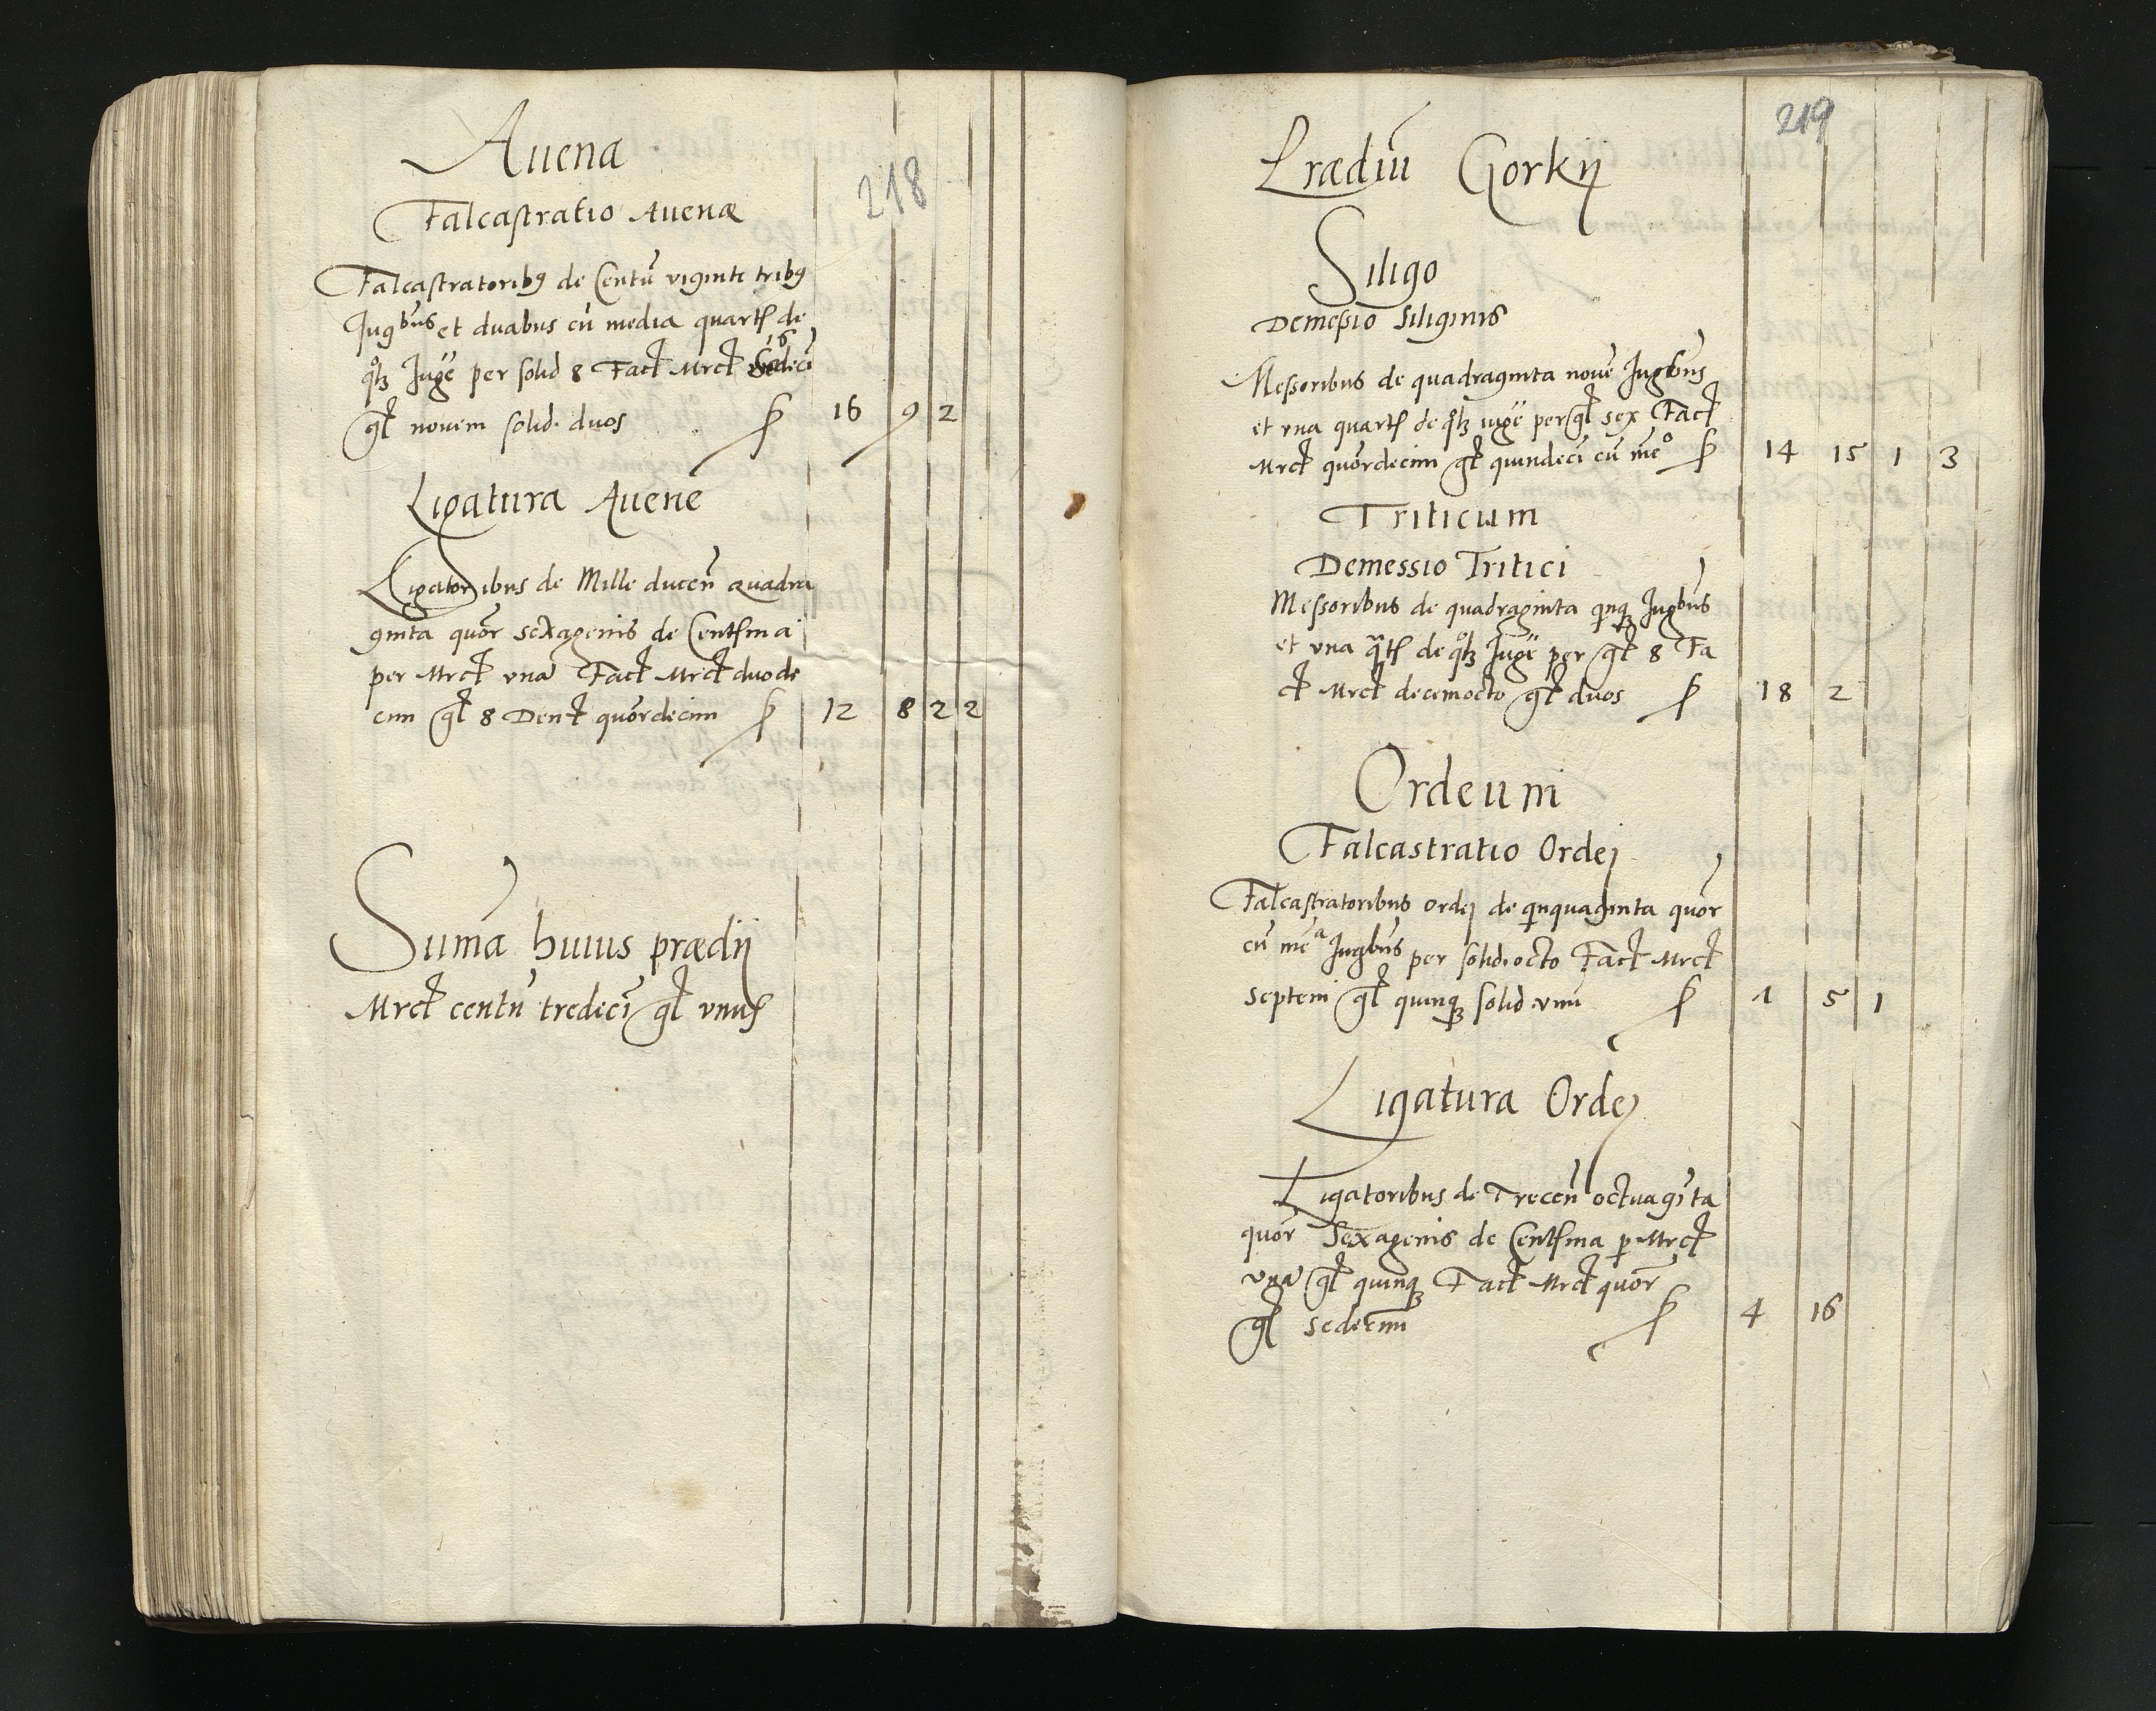 Auena
218
Falcastratio Auenæ
Falcastratoribꝯ de Centū viginti tribꝯ
Iugbus et duabus cū media quartꝭ de
16
qͦlꝫ Iugē per solid 8 Fact Mrct
gͭ novem solid. duos 16 9 2
Ligatura Auene
Ligatoribus de Mille ducen̄ quadra
ginta quor̄ sexagenis de Centsma
per Mrct vna Fact Mrct duode
cim gͭ 8 Dent quordecim 12 8 2 2
Sum̄a huius prædij
Mrct centū tredecī gͭ vnuꝭ
219
Prædiū Gorkij
Siligo
Demessio Siliginis
Messoribus de quadraginta novē Iugbus
et vna quartꝭ de qͦlꝫ iugē per gͭ sex Fact
Mrct quordecim gͭ quindecī cū meͦ 14 15 1 3
Triticum
Demessio Tritici
Messoribus de quadraginta qinqꝫ Iugbus
et vna qartꝭ de qͦlꝫ Iugē per gͭ 8 Fa
ct Mrct decemocto gͭ duos 18 2
Ordeum
Falcastratio Ordej
Falcastratoribus ordej de qinquaginta quor
cū meᵃ Iugbus per solid. octo Fact Mrct
septem gͭ quinqꝫ solid. vnū 1 5 1
Ligatura Ordej
Ligatoribus de Trecen̄ octuagīta
quor̄ Sexagenis de Centsma p Mrct
vna gͭ quinqꝫ Fact Mrct quor̄
gͭ sedecim 4 16